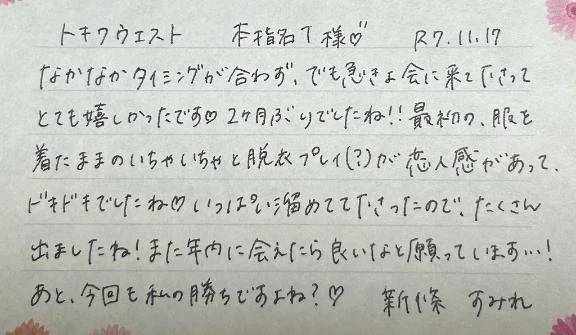 トキワウエスト 本指名T様♡ R7.11.17
なかなかタイミングが合わず、でも急きょ会に来て下さって
とても嬉しかったです♡ 2ヶ月ぶりでしたね!! 最初の、服を
着たままのいちゃいちゃと脱衣プレイ(?)が恋人感があって、
ドキドキでしたね♡ いっぱい溜めてて下さったので、たくさん
出ましたね! また年内に会えたら良いなと願っています…!
あと、今回も私の勝ちですよね?♡ 新條 すみれ